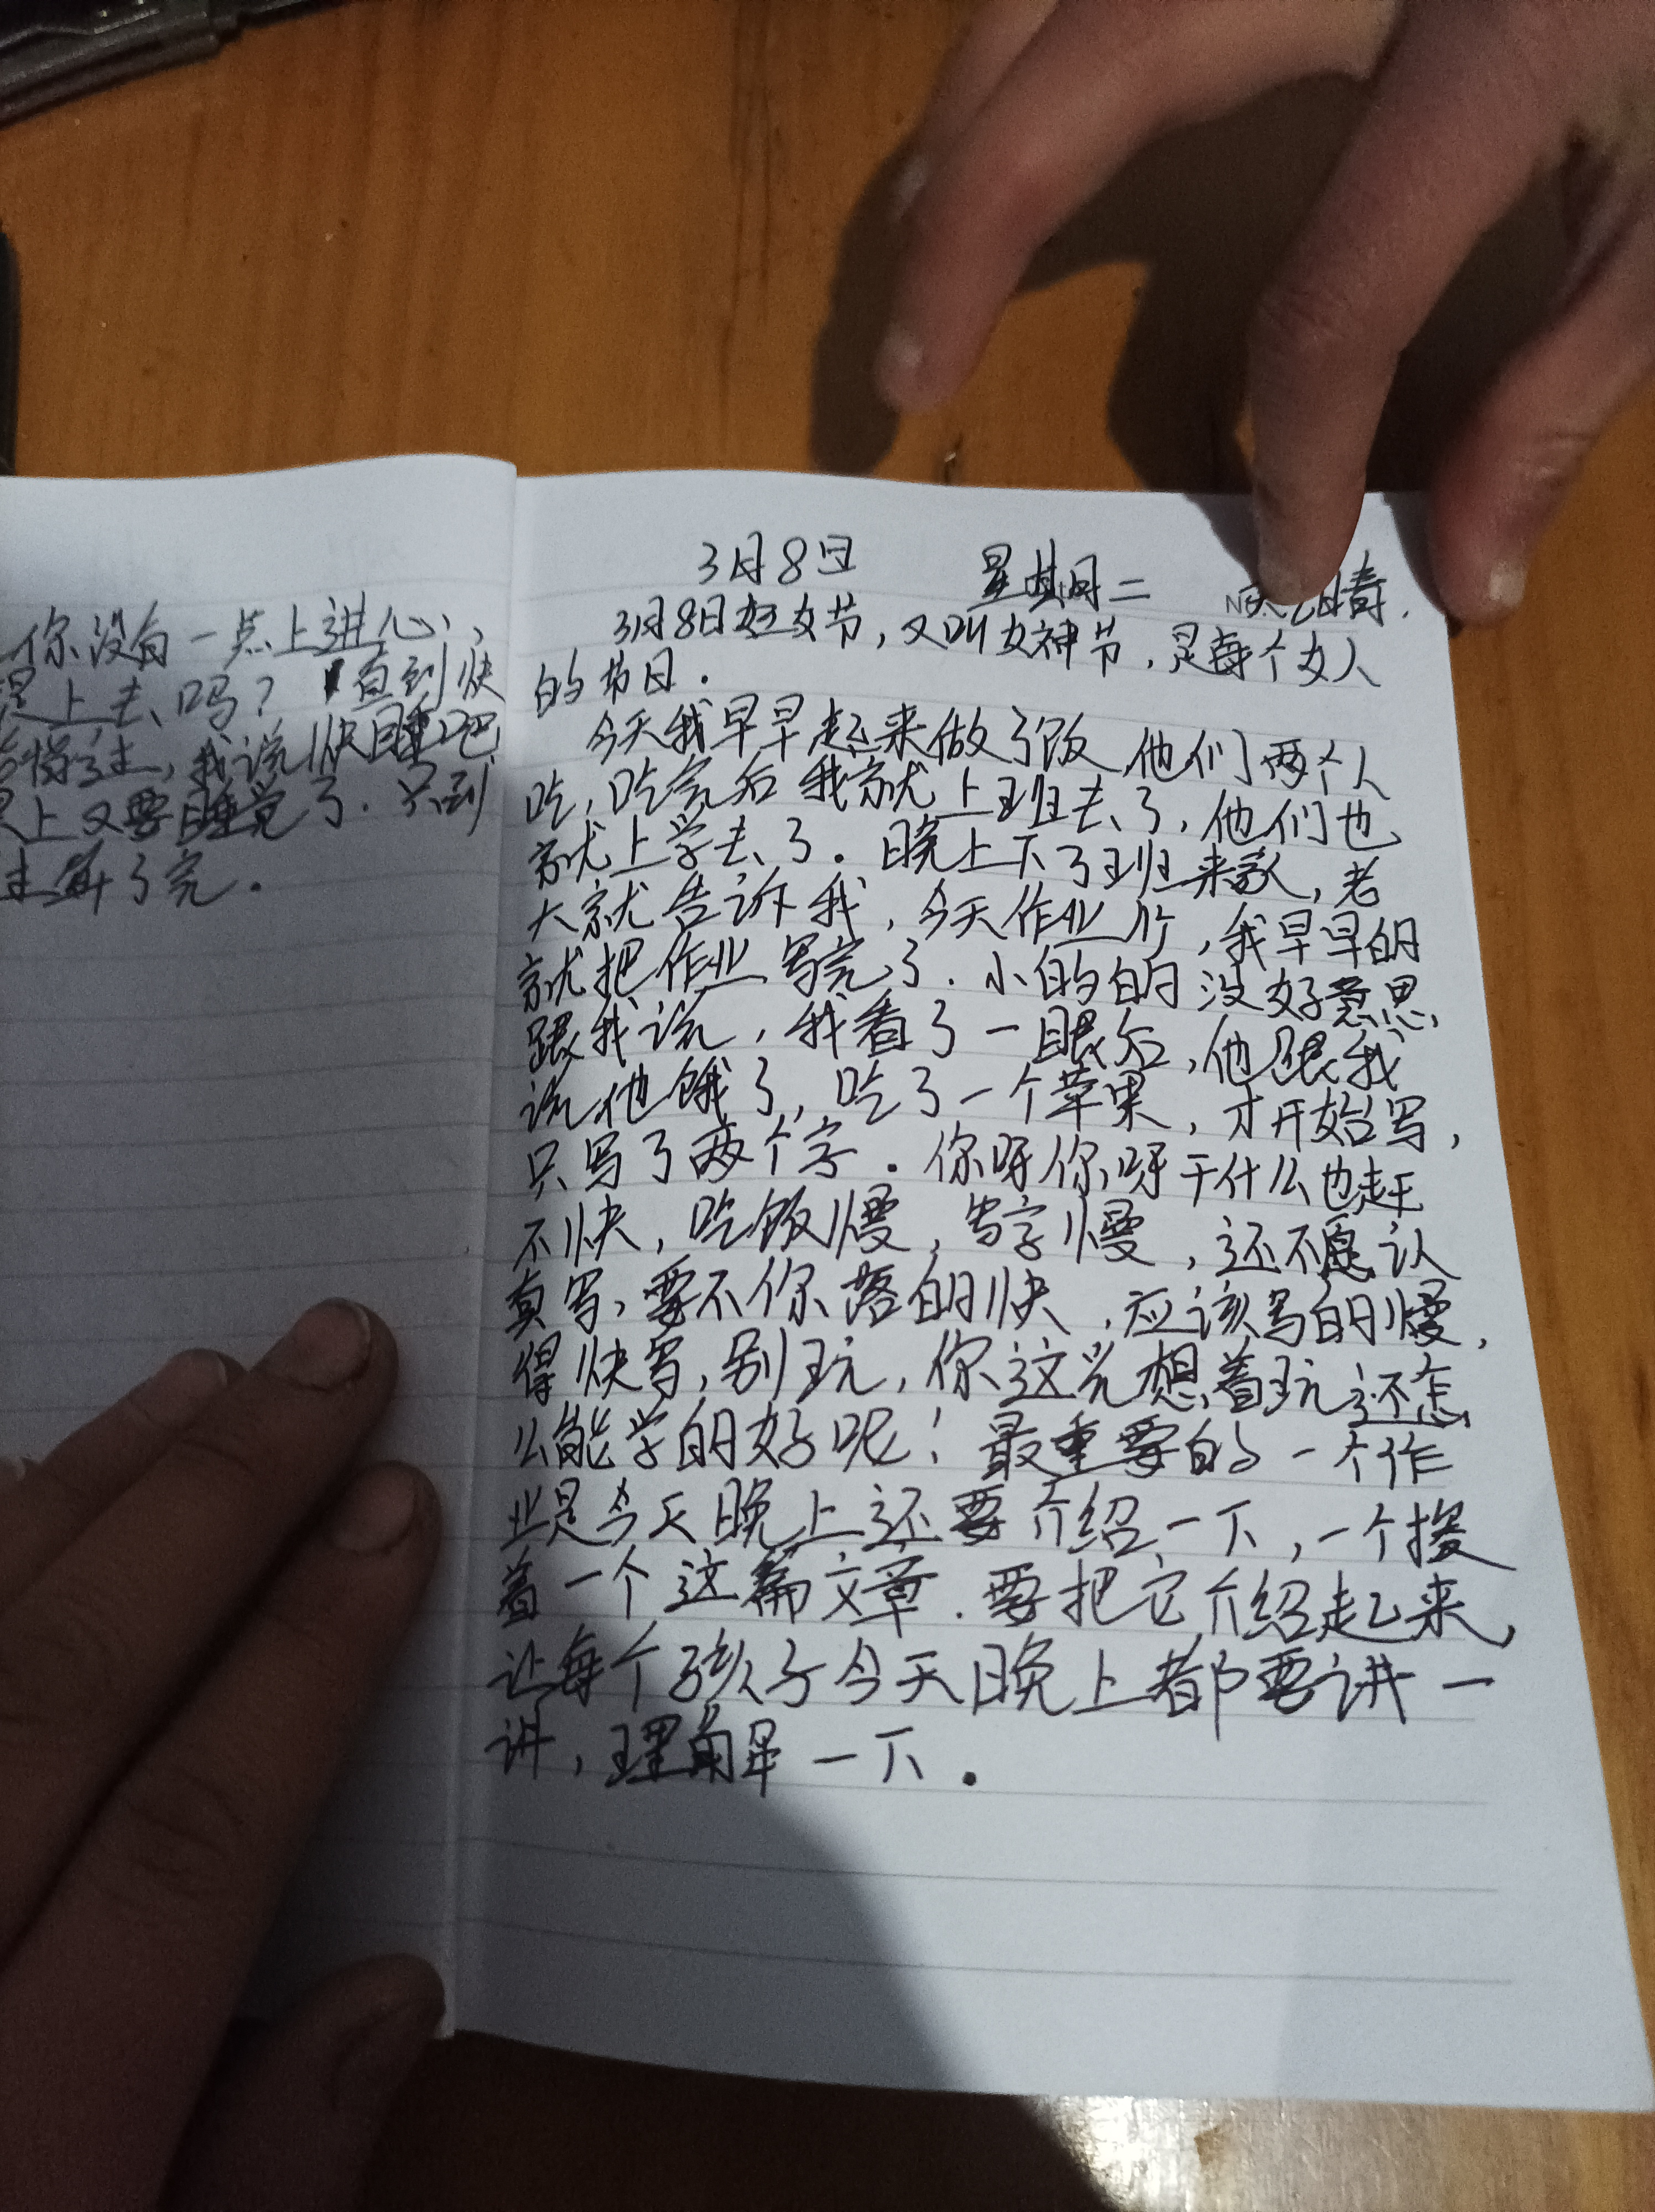 你没有一点上进心,
是上去吗? 直到快
我说快睡吧
上又要睡觉了.只到
了完.
3月8日 星期二 天气晴.
3月8日妇女节,又叫女神节,是每个女人
的节日.
今天我早早起来做了饭,他们两个人
吃,吃完后我就上班去了,他们也
就上学去了.晚上下了班来家,老
大就告诉我,今天作业少,我早早的
就把作业写完了.小的的没好意思
跟我说,我看了一眼后,他跟我
说他饿了,吃了一个苹果,才开始写,
只写了两个字.你呀你呀干什么也赶
不快,吃饭慢,写字慢,还不愿认
真写,要不你落的快,应该写的慢,
得快写,别玩,你这光想着玩还怎
么能学的好呢!最重要的一个作
业是今天晚上还要介绍一下,一个接
着一个这篇文章.要把它介绍起来,
让每个孩子今天晚上都要讲一
讲,理解一下.